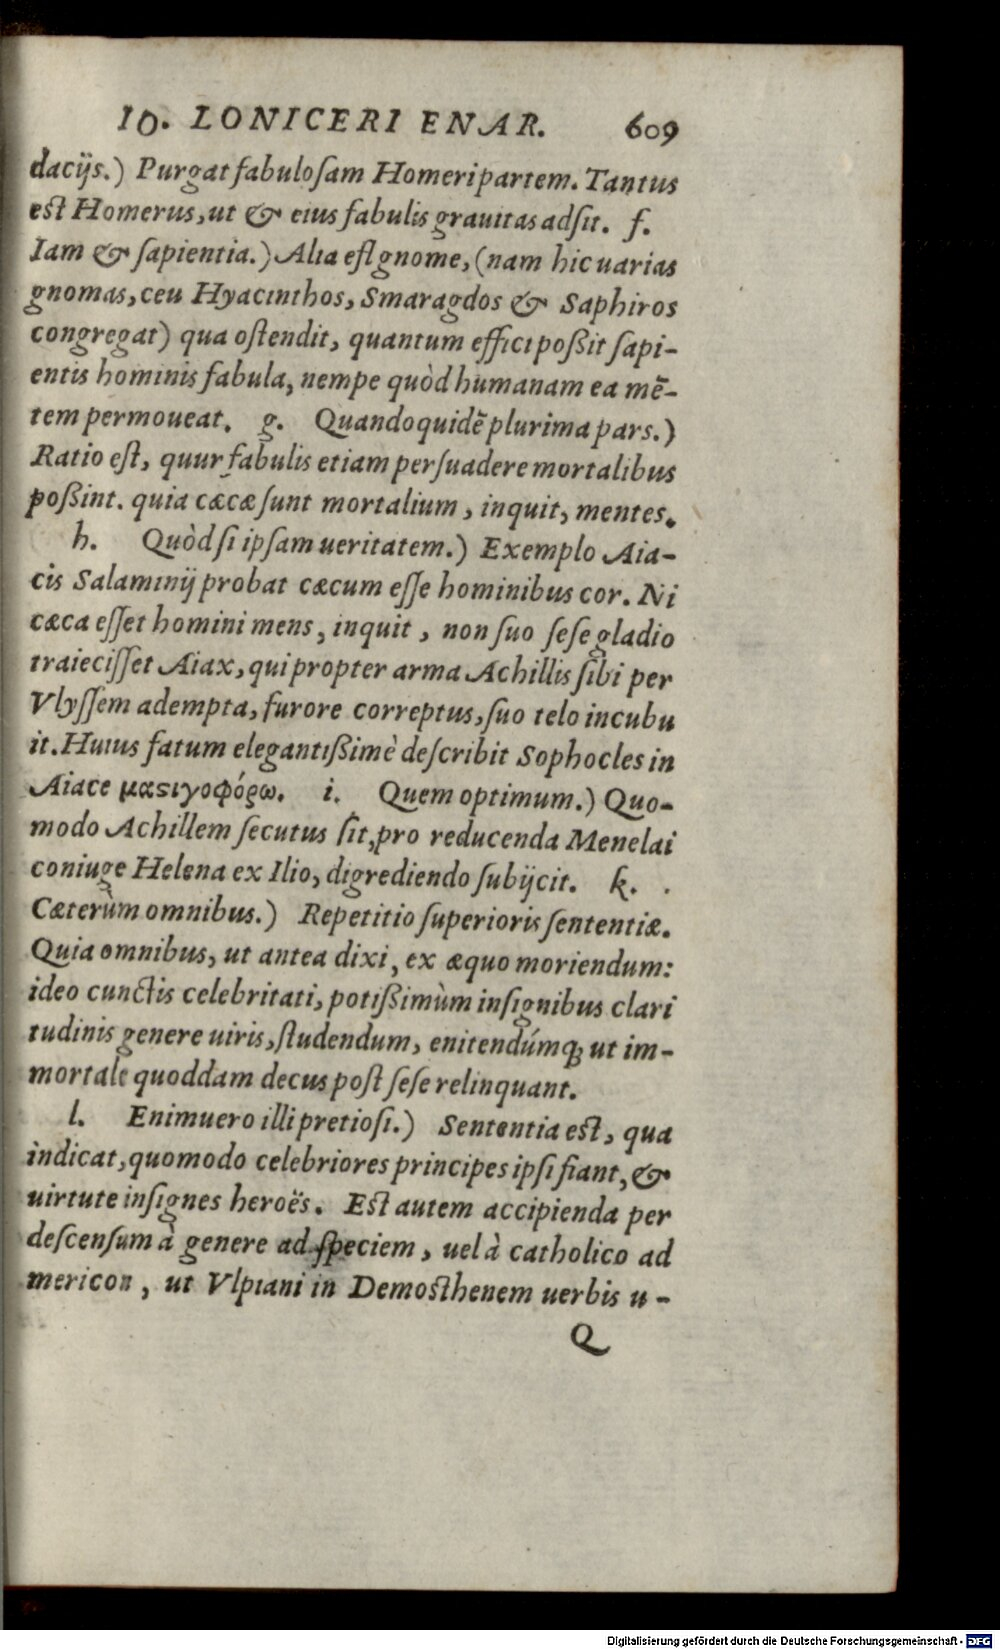 IO. LONICERI ENAR. 609
dacijs.) Purgat fabulosam Homeri partem. Tantus
est Homerus, ut & eius fabulis grauitas adsit. f.
Iam & sapientia.) Alia est gnome, (nam hic uarias
gnomas, ceu Hyacinthos, Smaragdos & Saphiros
congregat) qua ostendit, quantum effici poßit sapi-
entis hominis fabula, nempe quòd humanam ea mẽ-
tem permoueat. g. Quandoquidẽ plurima pars.)
Ratio est, quur fabulis etiam persuadere mortalibus
poßint. quia cæcæ sunt mortalium, inquit, mentes.
h. Quòd si ipsam ueritatem.) Exemplo Aia-
cis Salaminij probat cæcum esse hominibus cor. Ni
cæca esset homini mens, inquit, non suo sese gladio
traiecisset Aiax, qui propter arma Achillis sibi per
Vlyssem adempta, furore correptus, suo telo incubu
it. Huius fatum elegantißimè describit Sophocles in
Aiace μαϛιγοφόρω. i. Quem optimum.) Quo-
modo Achillem secutus sit, pro reducenda Menelai
coniuge Helena ex Ilio, digrediendo subijcit. k.
Cæterùm omnibus.) Repetitio superioris sententiæ.
Quia omnibus, ut antea dixi, ex æquo moriendum:
ideo cunctis celebritati, potißimùm insignibus clari
tudinis genere uiris, studendum, enitendúmq; ut im-
mortale quoddam decus post sese relinquant.
l. Enimuero illi pretiosi.) Sententia est, qua
indicat, quomodo celebriores principes ipsi fiant, &
uirtute insignes heroës. Est autem accipienda per
descensum à genere ad speciem, uel à catholico ad
mericon, ut Vlpiani in Demosthenem uerbis u-
Q
Digitalisierung gefördert durch die Deutsche Forschungsgemeinschaft - DFG